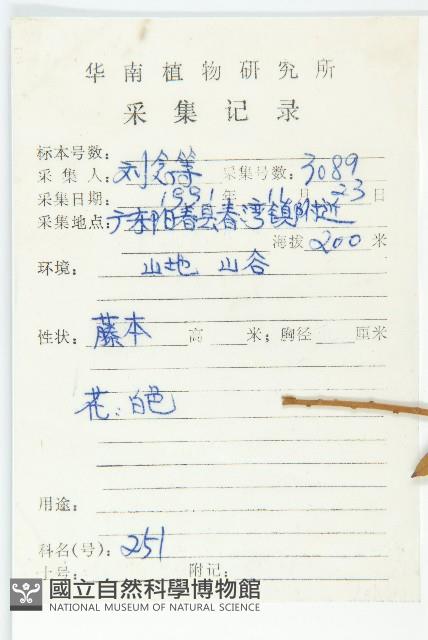 华南植物研究所
采集记录
标本号数:
采集人: 刘念等 采集号数: 3089
采集日期: 1991年11月23日
采集地点: 广东阳春县春湾镇附近
海拔 200 米
环境: 山地 山谷
性状: 藤本 高 米; 胸径 厘米
花: 白色
用途:
科名(号): 251
土名: 附记:
國立自然科學博物館
NATIONAL MUSEUM OF NATURAL SCIENCE